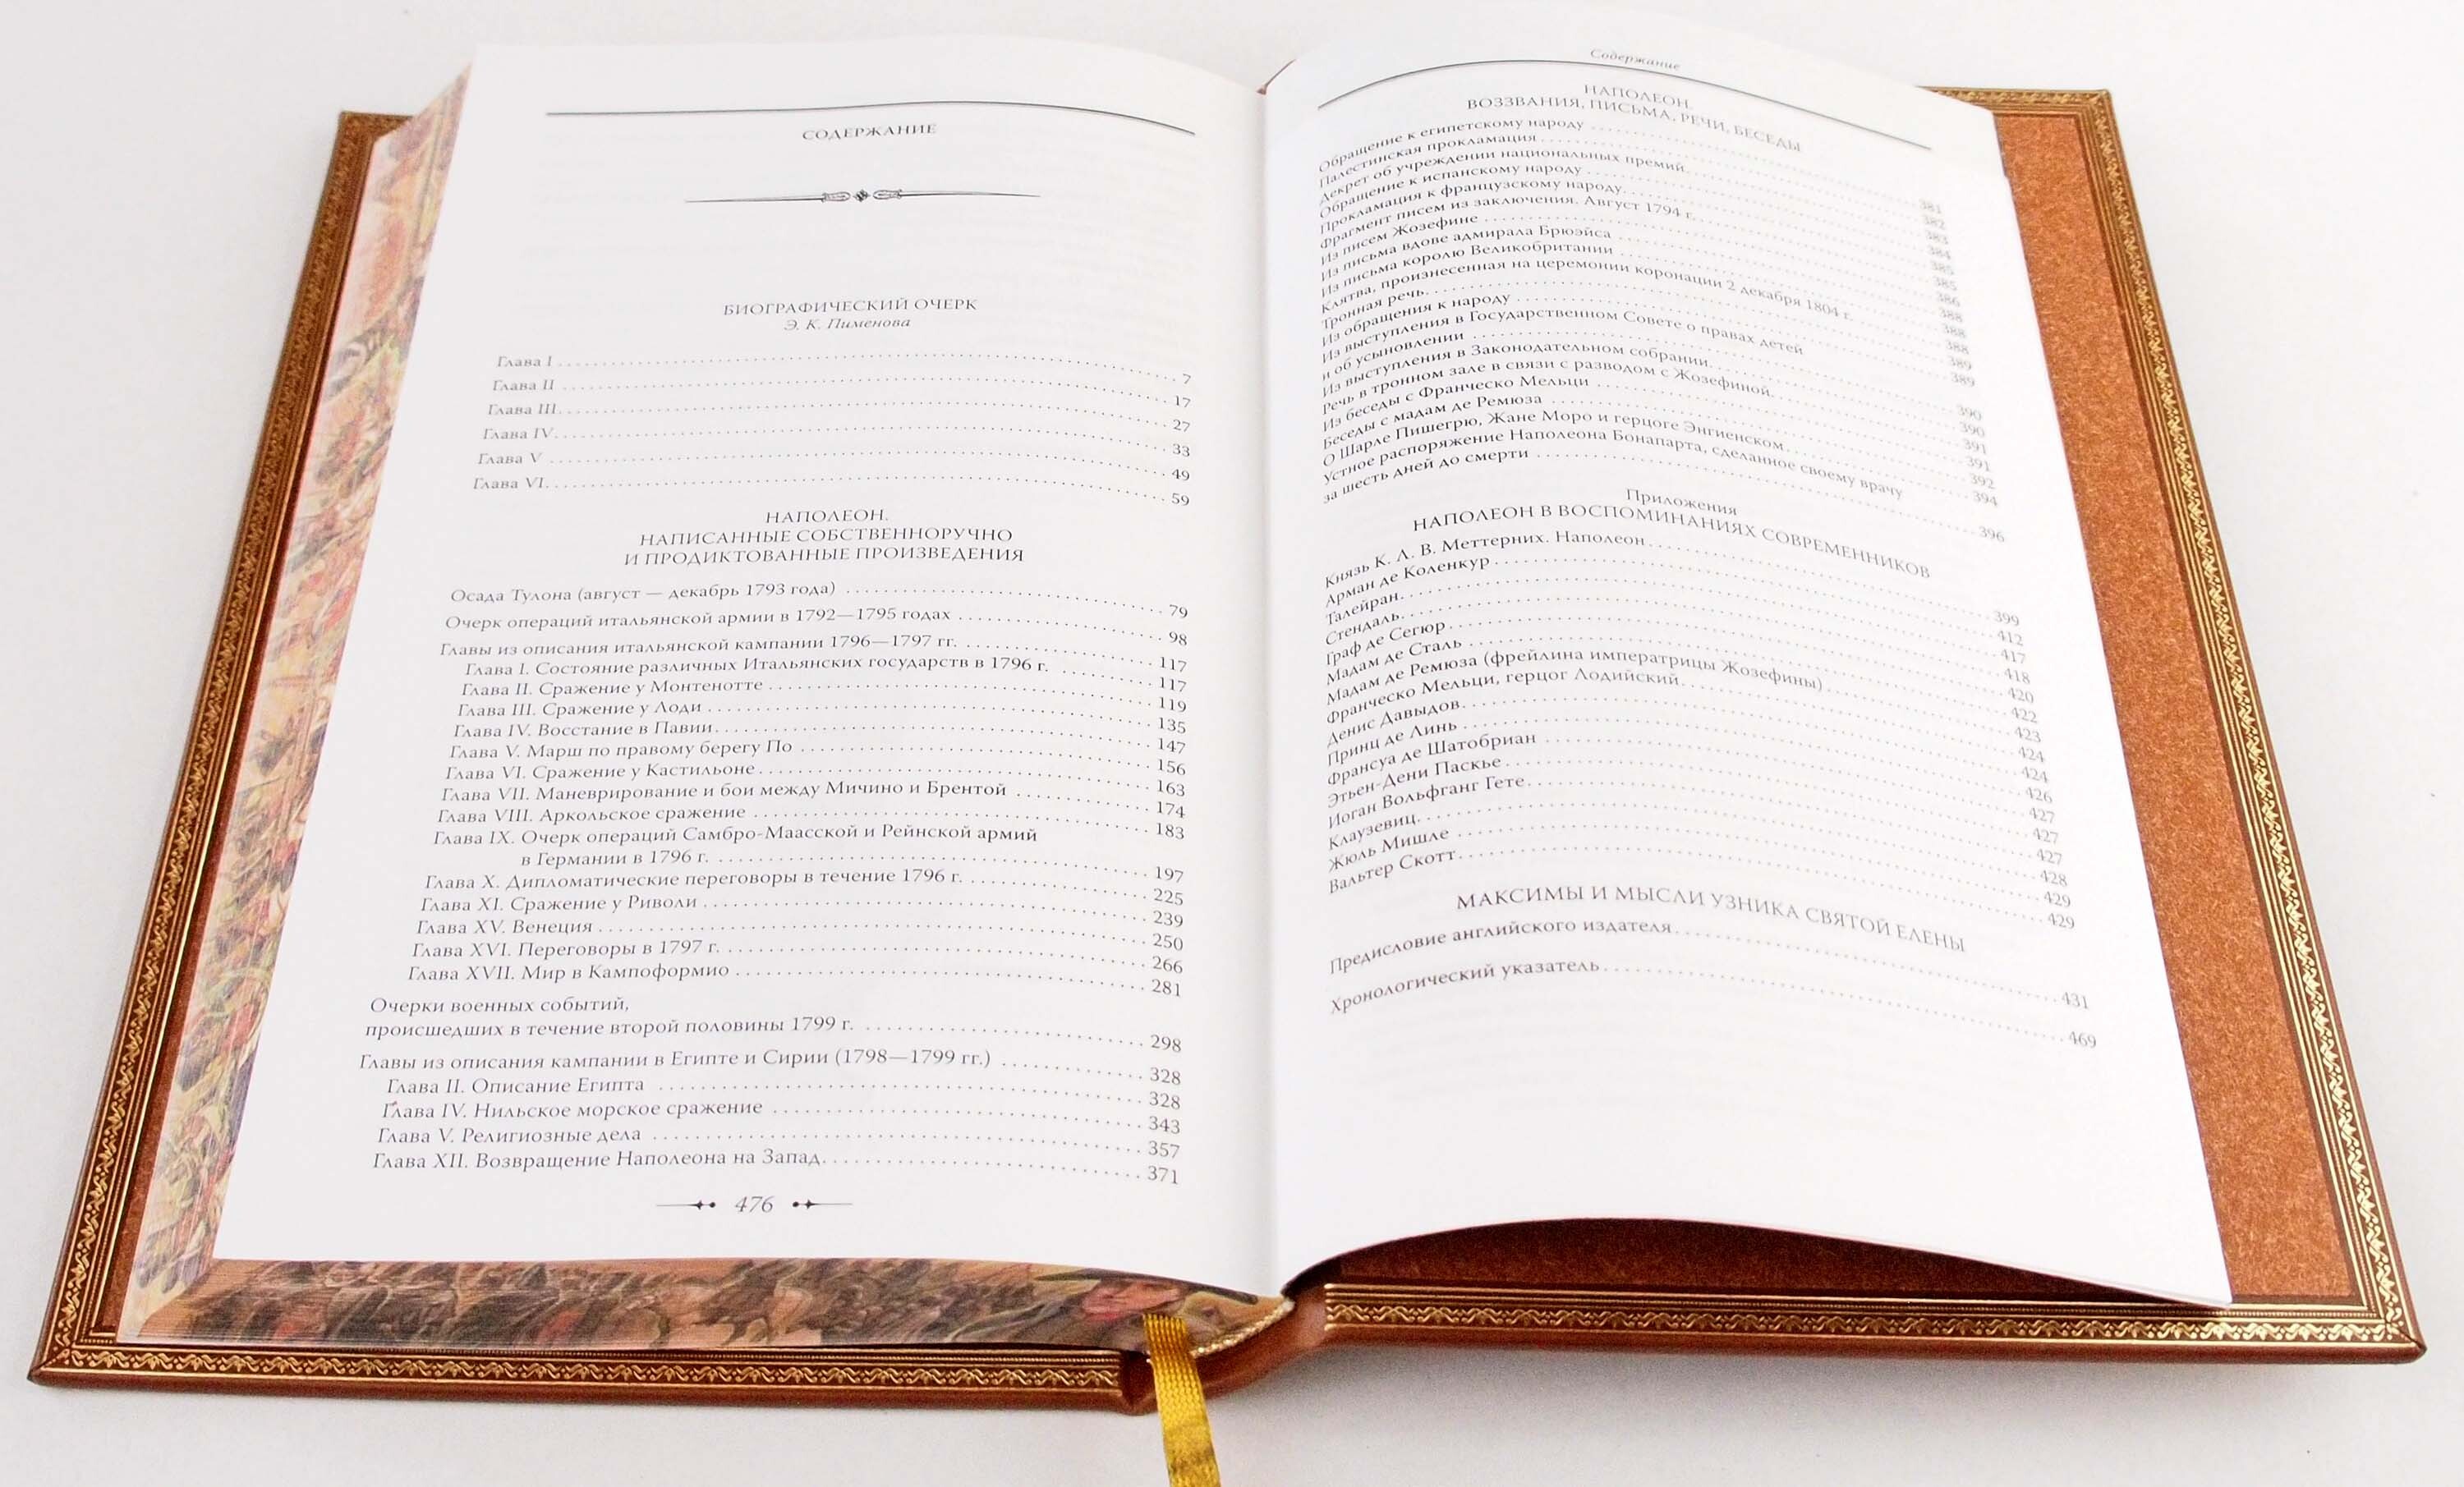 СОДЕРЖАНИЕ
БИОГРАФИЧЕСКИЙ ОЧЕРК
Э. К. Пименова
Глава I . . . 7
Глава II . . . 17
Глава III . . . 27
Глава IV . . . 33
Глава V . . . 49
Глава VI . . . 59
НАПОЛЕОН.
НАПИСАННЫЕ СОБСТВЕННОРУЧНО
И ПРОДИКТОВАННЫЕ ПРОИЗВЕДЕНИЯ
Осада Тулона (август — декабрь 1793 года) . . . 79
Очерк операций итальянской армии в 1792—1795 годах . . . 98
Главы из описания итальянской кампании 1796—1797 гг. . . . 117
Глава I. Состояние различных Итальянских государств в 1796 г. . . . 117
Глава II. Сражение у Монтенотте . . . 119
Глава III. Сражение у Лоди . . . 135
Глава IV. Восстание в Павии . . . 147
Глава V. Марш по правому берегу По . . . 156
Глава VI. Сражение у Кастильоне . . . 163
Глава VII. Маневрирование и бои между Мичино и Брентой . . . 174
Глава VIII. Аркольское сражение . . . 183
Глава IX. Очерк операций Самбро-Маасской и Рейнской армий
в Германии в 1796 г. . . . 197
Глава X. Дипломатические переговоры в течение 1796 г. . . . 225
Глава XI. Сражение у Риволи . . . 239
Глава XV. Венеция . . . 250
Глава XVI. Переговоры в 1797 г. . . . 266
Глава XVII. Мир в Кампоформио . . . 281
Очерки военных событий,
происшедших в течение второй половины 1799 г. . . . 298
Главы из описания кампании в Египте и Сирии (1798—1799 гг.) . . . 328
Глава II. Описание Египта . . . 328
Глава IV. Нильское морское сражение . . . 343
Глава V. Религиозные дела . . . 357
Глава XII. Возвращение Наполеона на Запад . . . 371
476
Содержание
НАПОЛЕОН.
ВОЗЗВАНИЯ, ПИСЬМА, РЕЧИ, БЕСЕДЫ
Обращение к египетскому народу . . . 381
Палестинская прокламация . . . 382
Декрет об учреждении национальных премий . . . 383
Обращение к испанскому народу . . . 384
Прокламация к французскому народу . . . 385
Фрагмент писем из заключения. Август 1794 г. . . . 385
Из писем Жозефине . . . 386
Из письма вдове адмирала Брюэйса . . . 388
Из письма королю Великобритании . . . 388
Клятва, произнесенная на церемонии коронации 2 декабря 1804 г. . . . 388
Тронная речь . . . 389
Из обращения к народу . . . 389
Из выступления в Государственном Совете о правах детей
и об усыновлении . . . 390
Из выступления в Законодательном собрании . . . 390
Речь в тронном зале в связи с разводом с Жозефиной . . . 391
Из беседы с Франческо Мельци . . . 391
Беседы с мадам де Ремюза . . . 392
О Шарле Пишегрю, Жане Моро и герцоге Энгиенском . . . 394
Устное распоряжение Наполеона Бонапарта, сделанное своему врачу
за шесть дней до смерти . . . 396
Приложения
НАПОЛЕОН В ВОСПОМИНАНИЯХ СОВРЕМЕННИКОВ
Князь К. Л. В. Меттерних. Наполеон . . . 399
Арман де Коленкур . . . 412
Талейран . . . 417
Стендаль . . . 418
Граф де Сегюр . . . 420
Мадам де Сталь . . . 422
Мадам де Ремюза (фрейлина императрицы Жозефины) . . . 423
Франческо Мельци, герцог Лодийский . . . 424
Денис Давыдов . . . 424
Принц де Линь . . . 426
Франсуа де Шатобриан . . . 427
Этьен-Дени Паскье . . . 427
Иоган Вольфганг Гете . . . 427
Клаузевиц . . . 428
Жюль Мишле . . . 429
Вальтер Скотт . . . 429
МАКСИМЫ И МЫСЛИ УЗНИКА СВЯТОЙ ЕЛЕНЫ
Предисловие английского издателя . . . 431
Хронологический указатель . . . 469